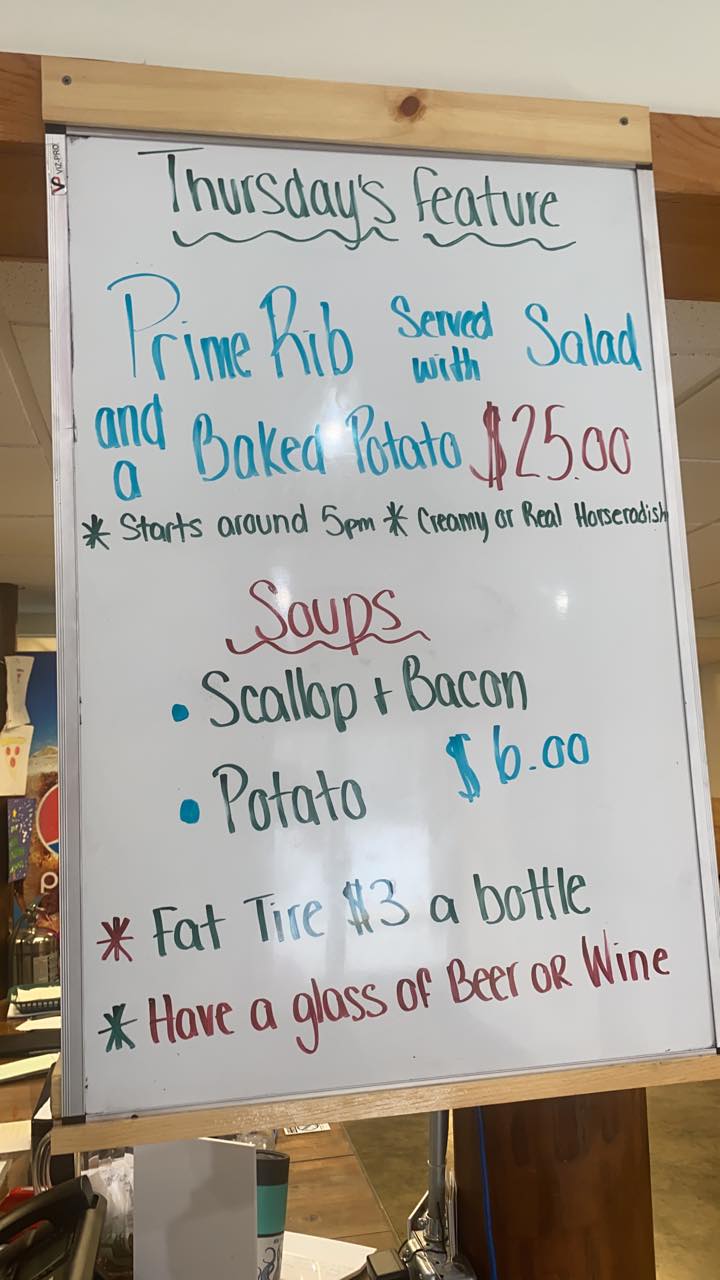 VIZ-PRO
Thursday's feature
Prime Rib Served with Salad
and a Baked Potato $25.00
* Starts around 5pm * Creamy or Real Horseradish
Soups
• Scallop + Bacon
• Potato $6.00
* Fat Tire $3 a bottle
* Have a glass of Beer OR Wine